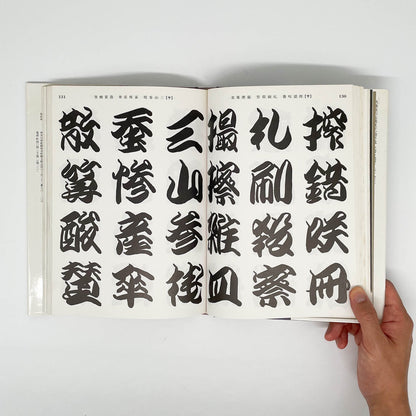 130
搾錯咲冊
札刷殺察
撮擦雑皿
131
三山参桟
蚕惨産傘
散算酸賛